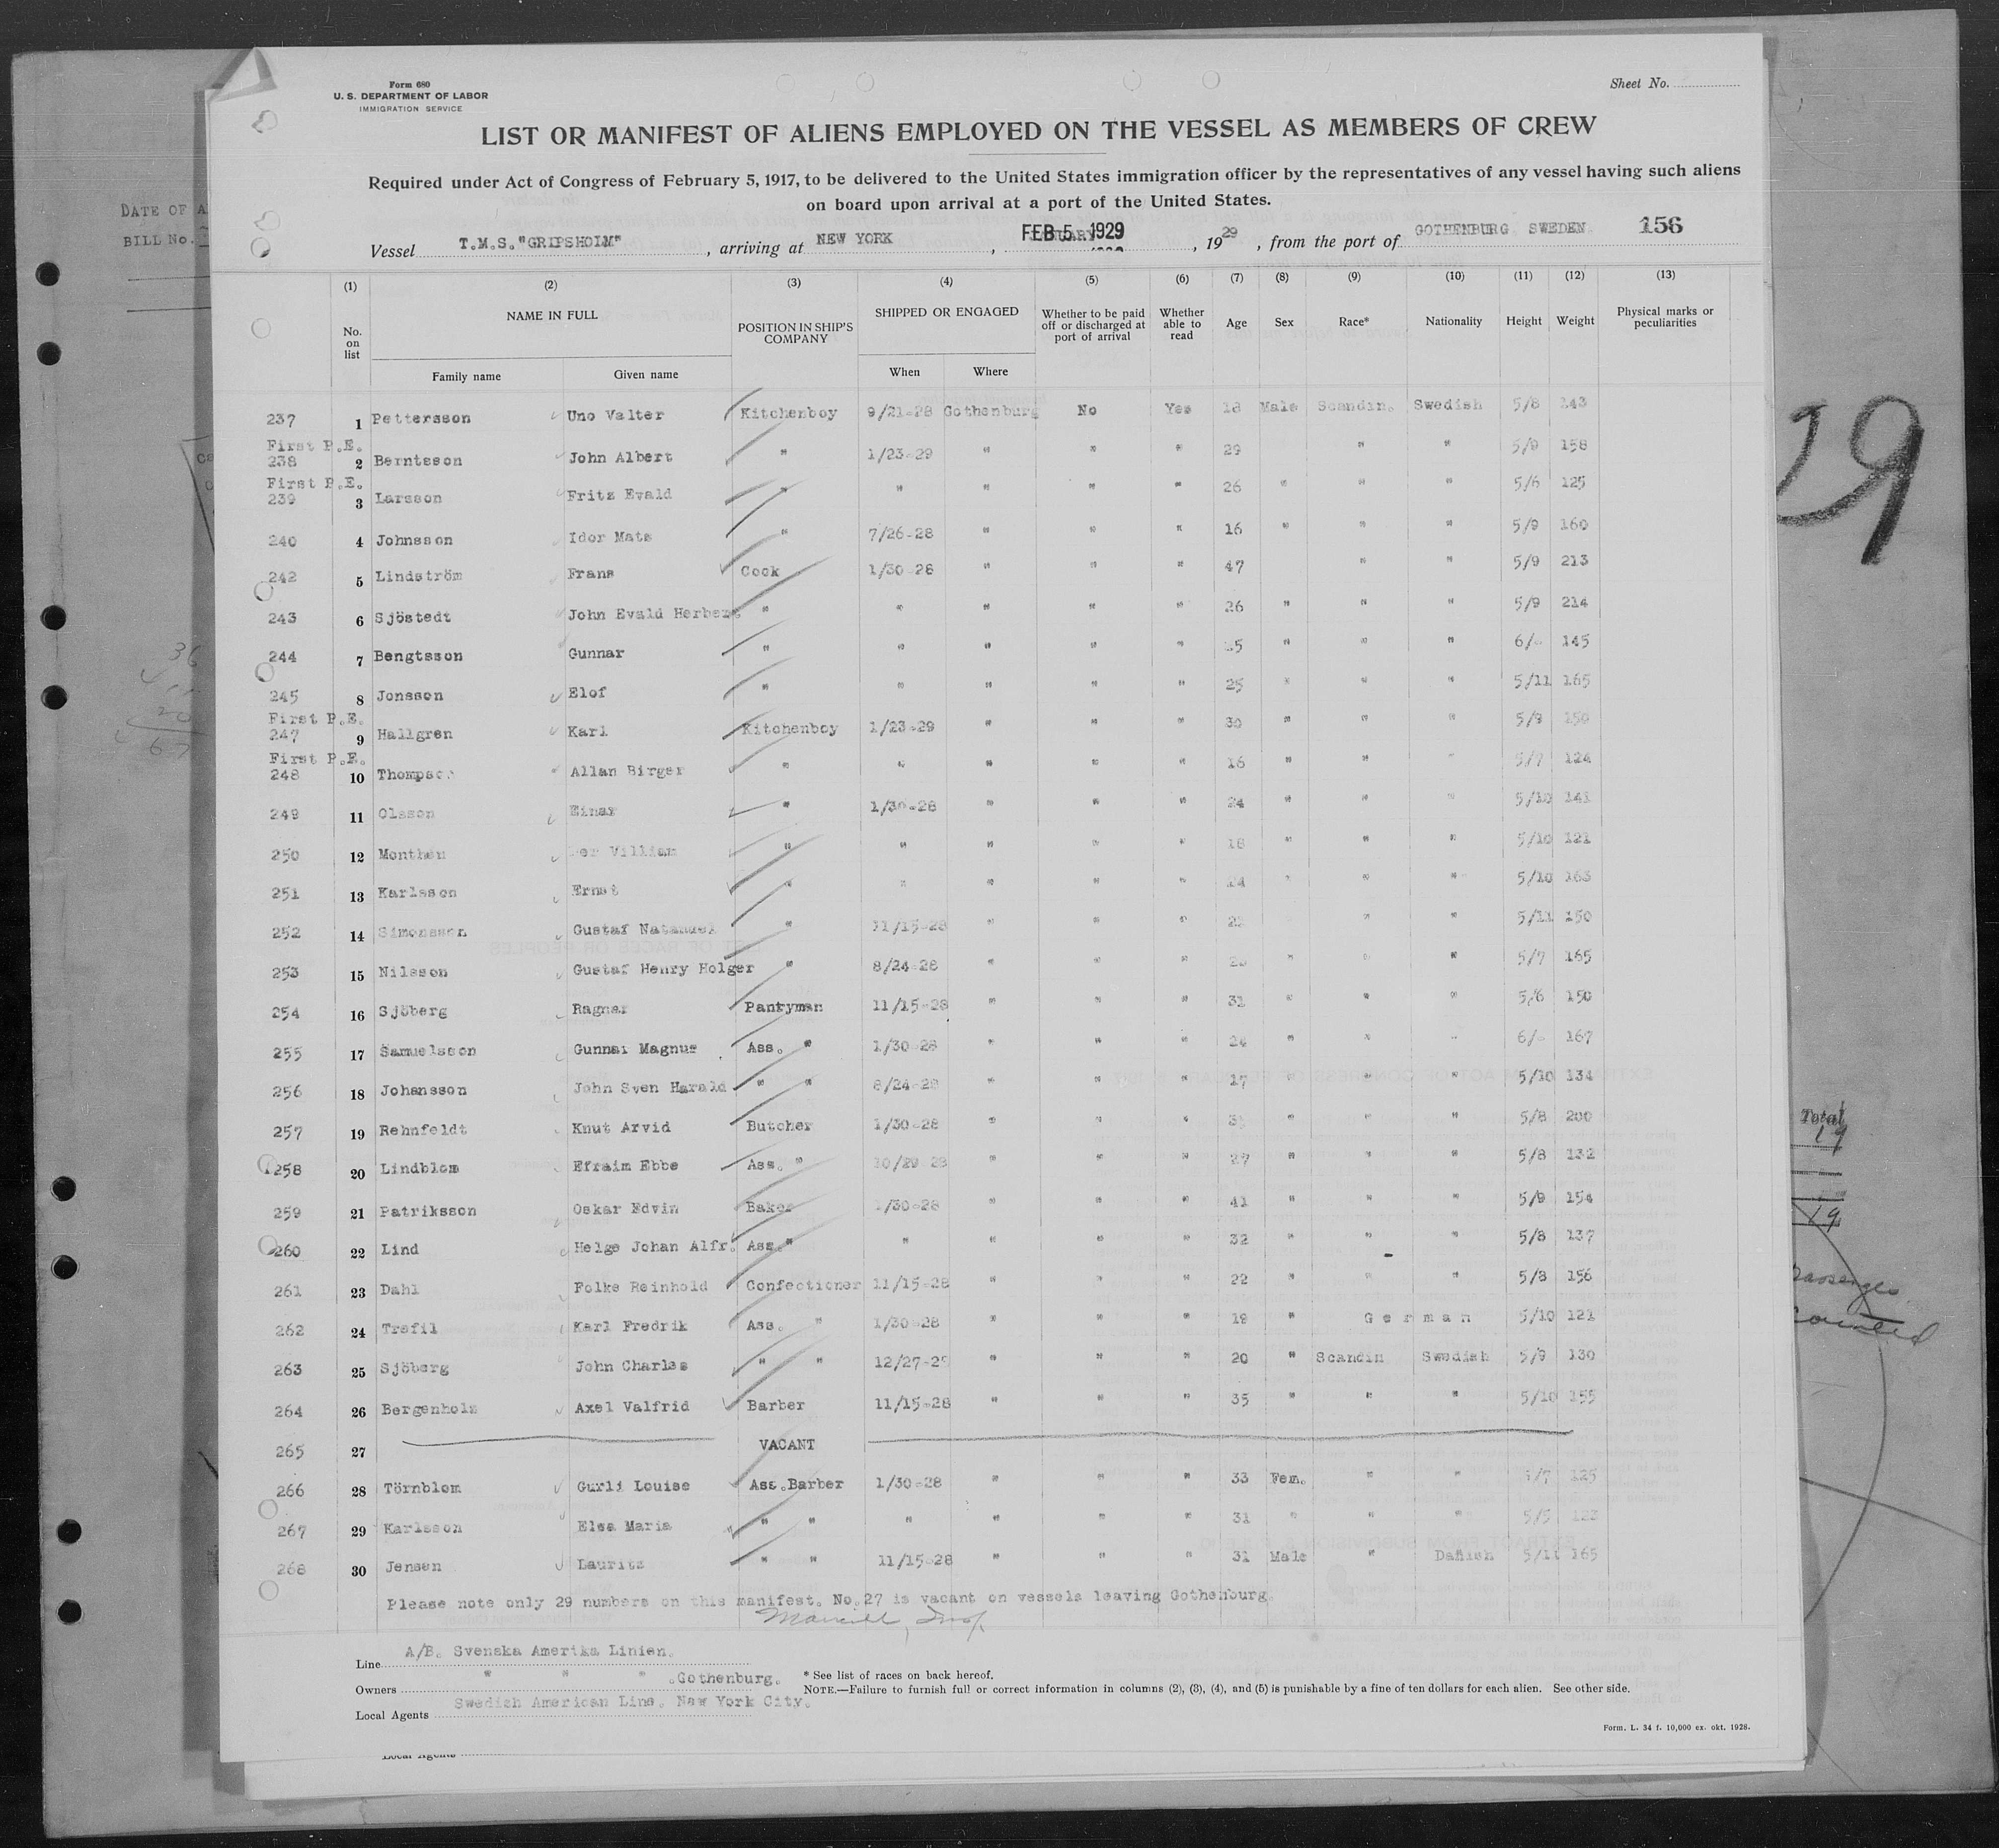 Form 680
U. S. DEPARTMENT OF LABOR
IMMIGRATION SERVICE
Sheet No.
LIST OR MANIFEST OF ALIENS EMPLOYED ON THE VESSEL AS MEMBERS OF CREW
Required under Act of Congress of February 5, 1917, to be delivered to the United States immigration officer by the representatives of any vessel having such aliens
on board upon arrival at a port of the United States.
DATE OF
BILL No.
Vessel T.M.S."GRIPSHOLM", arriving at NEW YORK, FEB 5 1929, 1929, from the port of GOTHENBURG SWEDEN 156
(1) (2) (3) (4) (5) (6) (7) (8) (9) (10) (11) (12) (13)
No. on list NAME IN FULL POSITION IN SHIP'S COMPANY SHIPPED OR ENGAGED Whether to be paid off or discharged at port of arrival Whether able to read Age Sex Race* Nationality Height Weight Physical marks or peculiarities
Family name Given name When Where
237 1 Pettersson Uno Valter Kitchenboy 9/21-28 Gothenburg No Yes 18 Male Scandin. Swedish 5/8 143
First P.E.
238 2 Berntsson John Albert " 1/23-29 " " " 29 " " 5/9 158
First P.E.
239 3 Larsson Fritz Evald " " " " " 26 " " " 5/6 125
240 4 Johnsson Idor Mats " 7/26-28 " " " 16 " " " 5/9 160
242 5 Lindström Frans Cook 1/30-28 " " " 47 " " 5/9 213
243 6 Sjöstedt John Evald Herbert " " " " " 26 " " " 5/9 214
244 7 Bengtsson Gunnar " " " " " " " " 6/- 145
245 8 Jonsson Elof " " " " " 25 " " " 5/11 165
First P.E.
247 9 Hallgren Karl Kitchenboy 1/23-29 " " " 30 " " " 5/9 150
First P.E.
248 10 Thompson Allan Birger " " " " " 16 " " " 5/7 124
249 11 Olsson Einar " 1/30-28 " " " 24 " " " 5/10 141
250 12 Monthen Per Villiam " " " " " 18 " " " 5/10 121
251 13 Karlsson Ernst " " " " " 24 " " " 5/10 163
252 14 Simonsson Gustaf Natanuel " 11/15-28 " " " " " 5/11 150
253 15 Nilsson Gustaf Henry Holger " 8/24-28 " " " " " " 5/7 165
254 16 Sjöberg Ragnar Pantryman 11/15-28 " " " 31 " " " 5/6 150
255 17 Samuelsson Gunnar Magnus Ass. " 1/30-28 " " " 24 " " " 6/- 167
256 18 Johansson John Sven Harald " " 8/24-28 " " " 17 " " " 5/10 134
257 19 Rehnfeldt Knut Arvid Butcher 1/30-28 " " " " " " 5/8 200
258 20 Lindblom Efraim Ebbe Ass. " 10/29-28 " " " 27 " " " 5/8 132
259 21 Patriksson Oskar Edvin Baker 1/30-28 " " " 41 " " " 5/9 154
260 22 Lind Helge Johan Alfr. Ass." " " " " 32 " " " 5/8 137
261 23 Dahl Folke Reinhold Confectioner 11/15-28 " " " 22 " " " 5/8 156
262 24 Trefil Karl Fredrik Ass. " 1/30-28 " " " 19 " German 5/10 121
263 25 Sjöberg John Charles " " 12/27-28 " " " 20 " Scandin Swedish 5/9 130
264 26 Bergenholm Axel Valfrid Barber 11/15-28 " " " 35 " " " 5/10 155
265 27 VACANT
266 28 Törnblom Gurli Louise Ass.Barber 1/30-28 " " " 33 Fem. " " 5/7 125
267 29 Karlsson Elsa Maria " " " " " " 31 " " " 5/5 123
268 30 Jensen Lauritz " " 11/15-28 " " " 31 Male " Danish 5/11 165
Please note only 29 numbers on this manifest. No.27 is vacant on vessels leaving Gothenburg.
Line A/B. Svenska Amerika Linien.
Owners " " " .Gothenburg.
Local Agents Swedish American Line. New York City.
* See list of races on back hereof.
NOTE.—Failure to furnish full or correct information in columns (2), (3), (4), and (5) is punishable by a fine of ten dollars for each alien. See other side.
Form. L. 34 f. 10,000 ex. okt. 1928.
Local Agents
29
Total
19
19